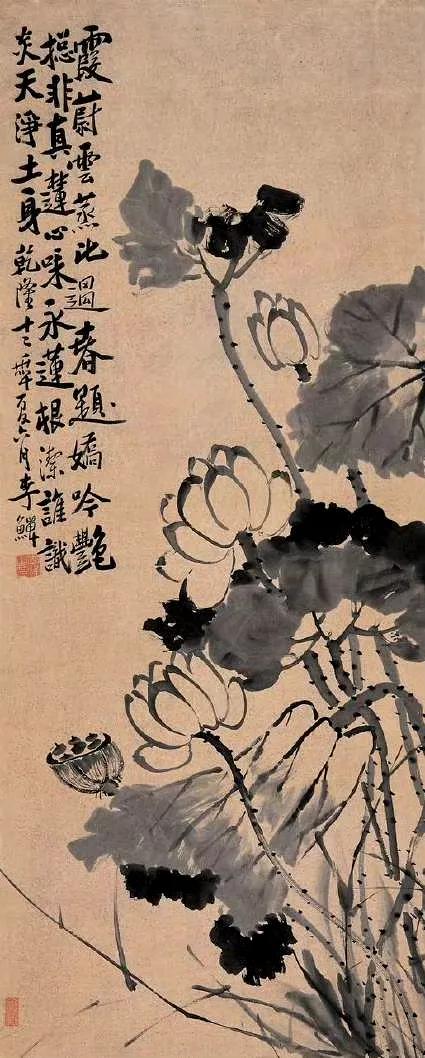 霞蔚雲蒸春題嬌吟艷
摠非真蓮心味永蓮根潔誰識
炎天淨土身 乾隆十二年夏六月李鱓